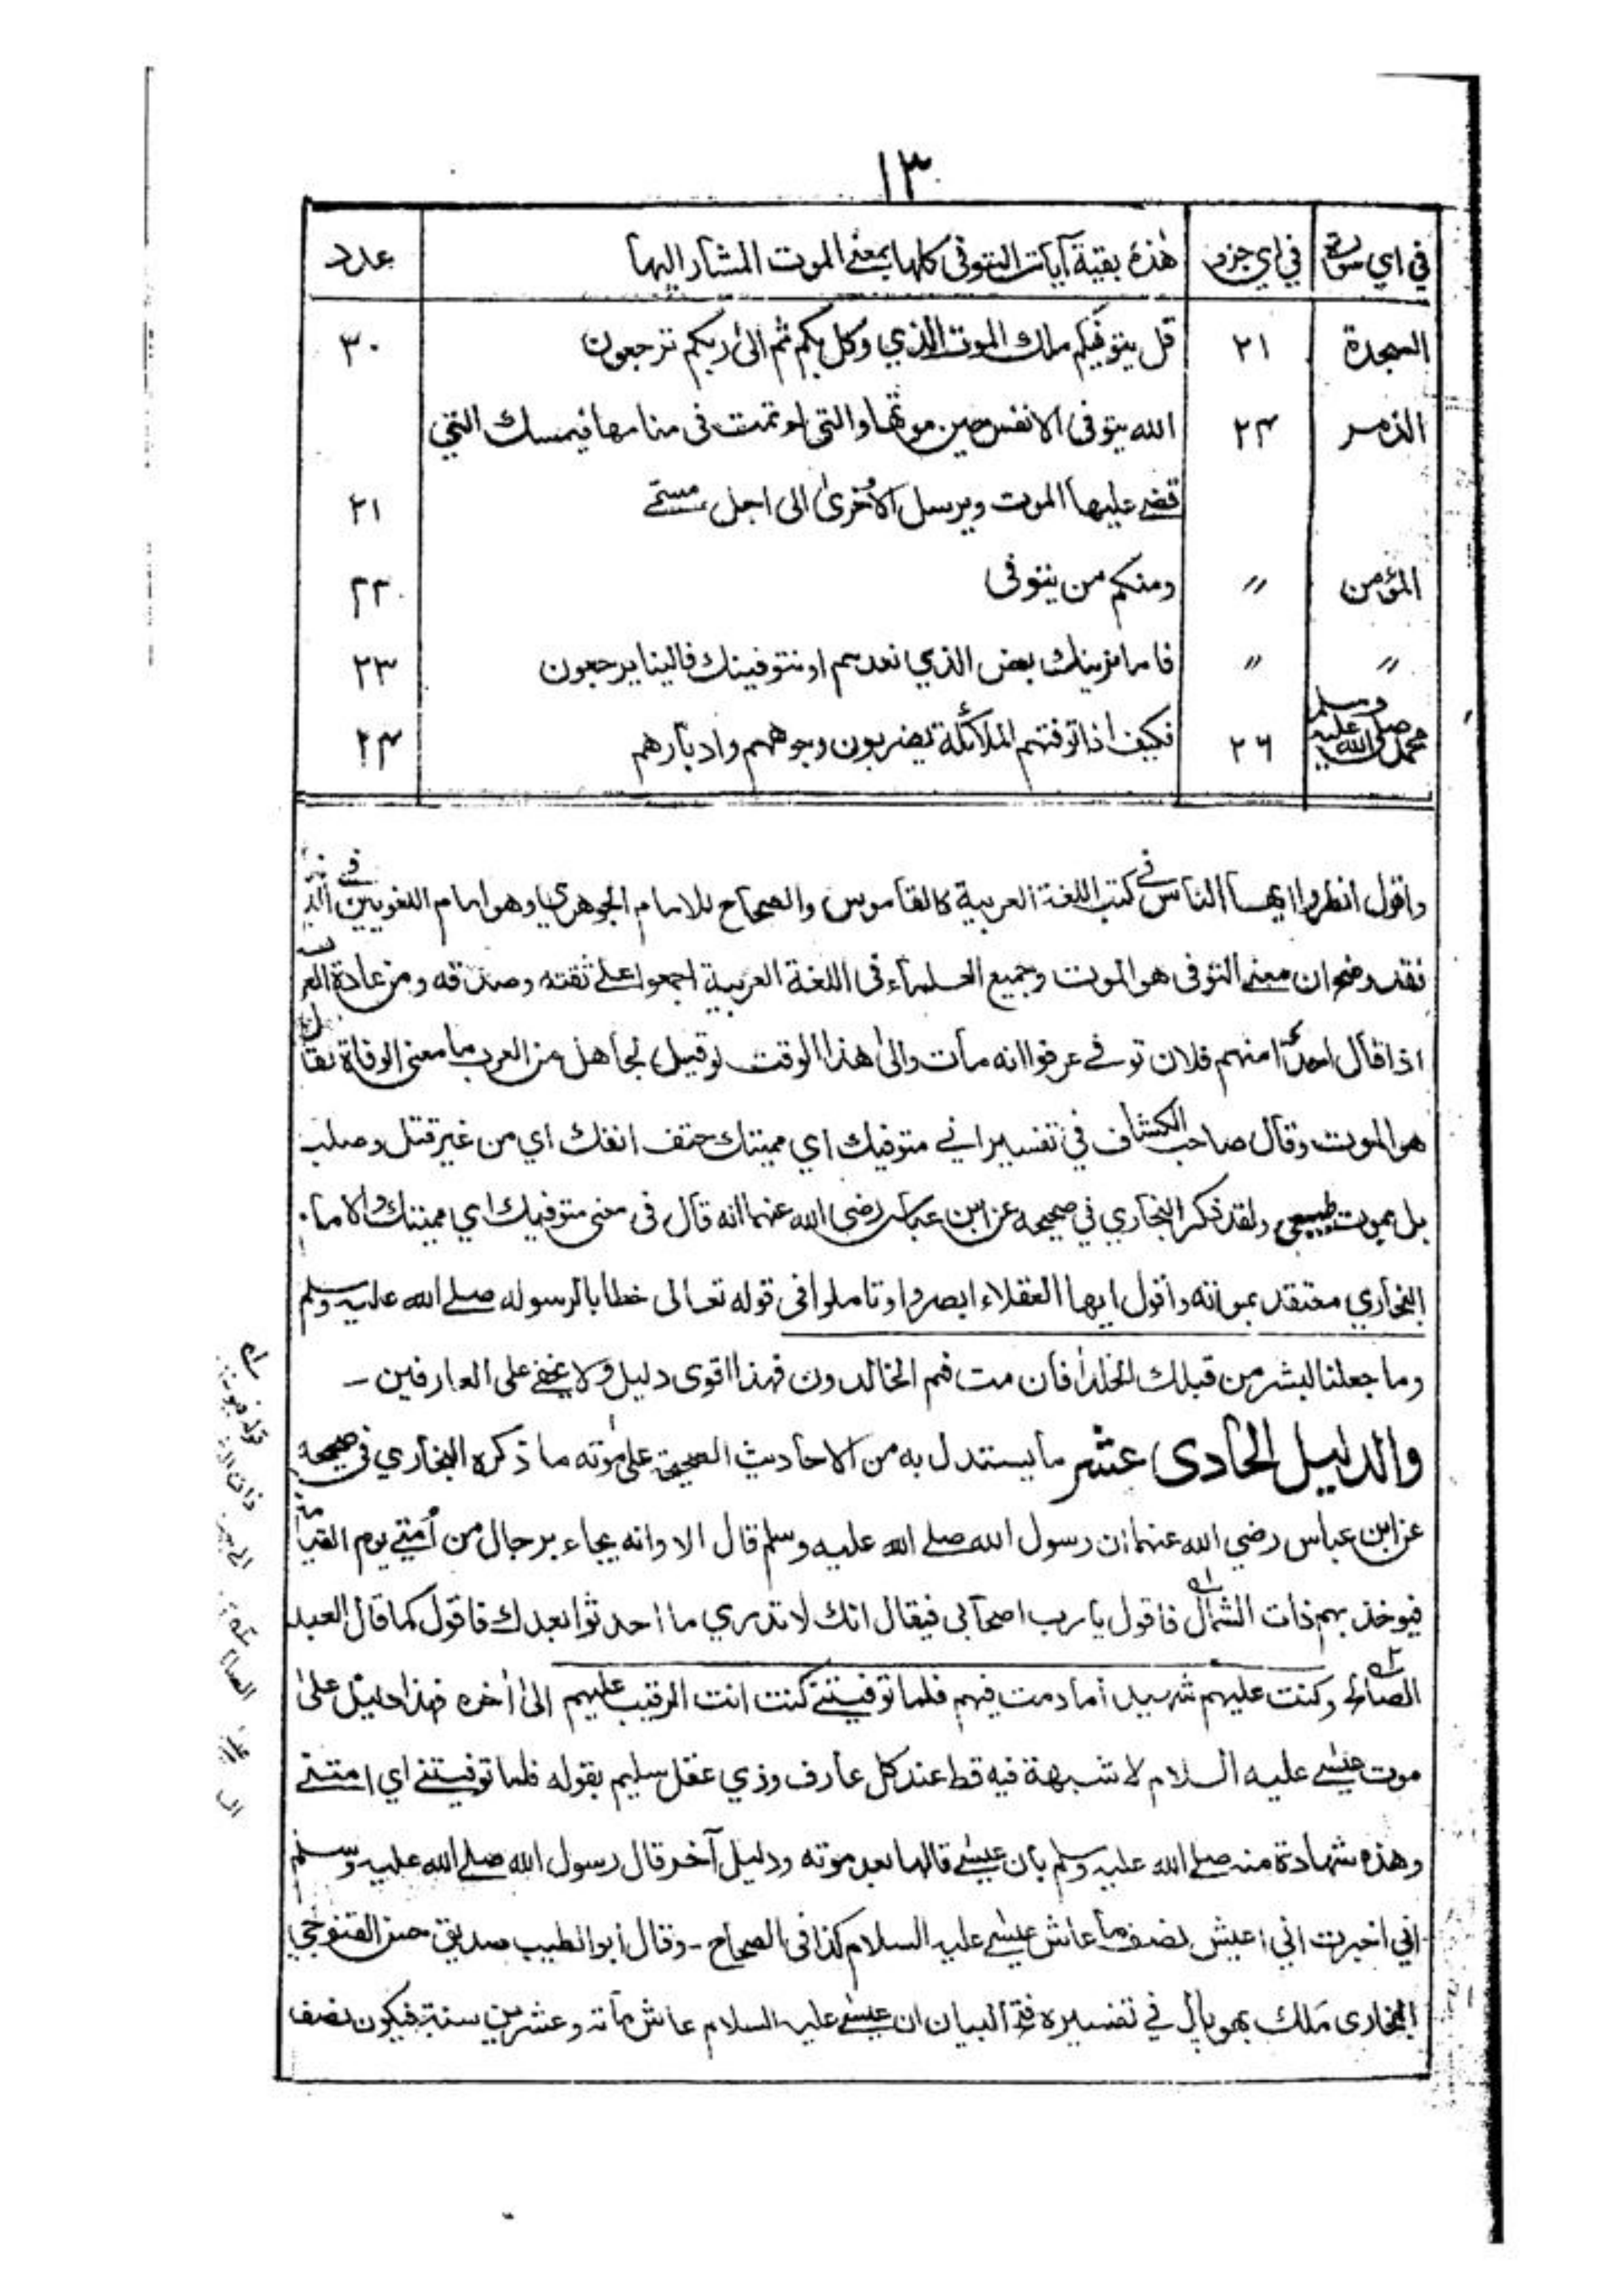 ١٣
في اي سورة في اي جزء هٰذه بقية آيات التوفى كلها بمعنے الموت المشار اليها عدد
السجدة ٢١ قل يتوفيكم ملك الموت الذي وكل بكم ثم الىٰ ربكم ترجعون ٢٠
الزمر ٢٤ الله يتوفى الانفس حين موتها والتى لم تمت فى منامها فيمسك التي
قضے عليها الموت ويرسل الاُخرىٰ الى اجل مسمّے ٢١
المؤمن 〃 ومنكم من يتوفى ٢٢
〃 〃 فاما نرينك بعض الذي نعدهم او نتوفينك فالينا يرجعون ٢٣
محمد صلى الله عليه وسلم ٢٦ فكيف اذا توفتهم الملائكة يضربون وجوههم وادبارهم ٢٤
واقول انظروا ايها الناس في كتب اللغة العربية كالقاموس والصحاح للامام الجوهري وهو امام اللغويين في
فقد وضح ان معنے التوفى هو الموت وجميع العلماء فى اللغة العربية اجمعوا علے ثقته وصدقه ومن عادة العرب
اذا قال احدٌ منهم فلان توفے عرفوا انه مات والىٰ هذا الوقت لو قيل لجاهل من العرب ما معنى الوفاة لقال
هو الموت وقال صاحب الكشاف في تفسير انے متوفيك اي مميتك حتف انفك اي من غير قتل وصلب
بل بموت طبيعي ولقد ذكر البخاري في صحيحه عن ابن عباس رضى الله عنهما انه قال فى معنى متوفيك اي مميتك والامام
البخاري معتقد بموته واقول ايها العقلاء ابصروا وتاملوا فى قوله تعالى خطابا لرسوله صلے الله عليه وسلم
وما جعلنا لبشر من قبلك الخلد أفان مت فهم الخالدون فهذا اقوى دليل ولا يخفے على العارفين ـ
والدليل الحادى عشر ما يستدل به من الاحاديث الصحيحة علىٰ موته ما ذكره البخاري في صحيحه
عن ابن عباس رضي الله عنهما ان رسول الله صلے الله عليه وسلم قال الا وانه يجاء برجال من أمتي يوم القيامة
فيوخذ بهم ذات الشمال فاقول يا رب اصحابى فيقال انك لا تدري ما احدثوا بعدك فاقول كما قال العبد
الصالح وكنت عليهم شهيدا ما دمت فيهم فلما توفيتنے كنت انت الرقيب عليهم الىٰ آخره فهذا دليل علىٰ
موت عيسے عليه السلام لا شبهة فيه قط عند كل عارف وذي عقل سليم بقوله فلما توفيتنے اي امتنے
وهذه شهادة منه صلے الله عليه وسلم بان عيسےٰ قالها بعد موته ودليل آخر قال رسول الله صلے الله عليه وسلم
اني اخبرت اني اعيش نصف ما عاش عيسے عليه السلام كذا فى الصحاح ـ وقال ابو الطيب صديق حسن القنوجي
البخارى ملك بهوبال في تفسيره فتح البيان ان عيسے عليه السلام عاش مائة وعشرين سنة فيكون نصف